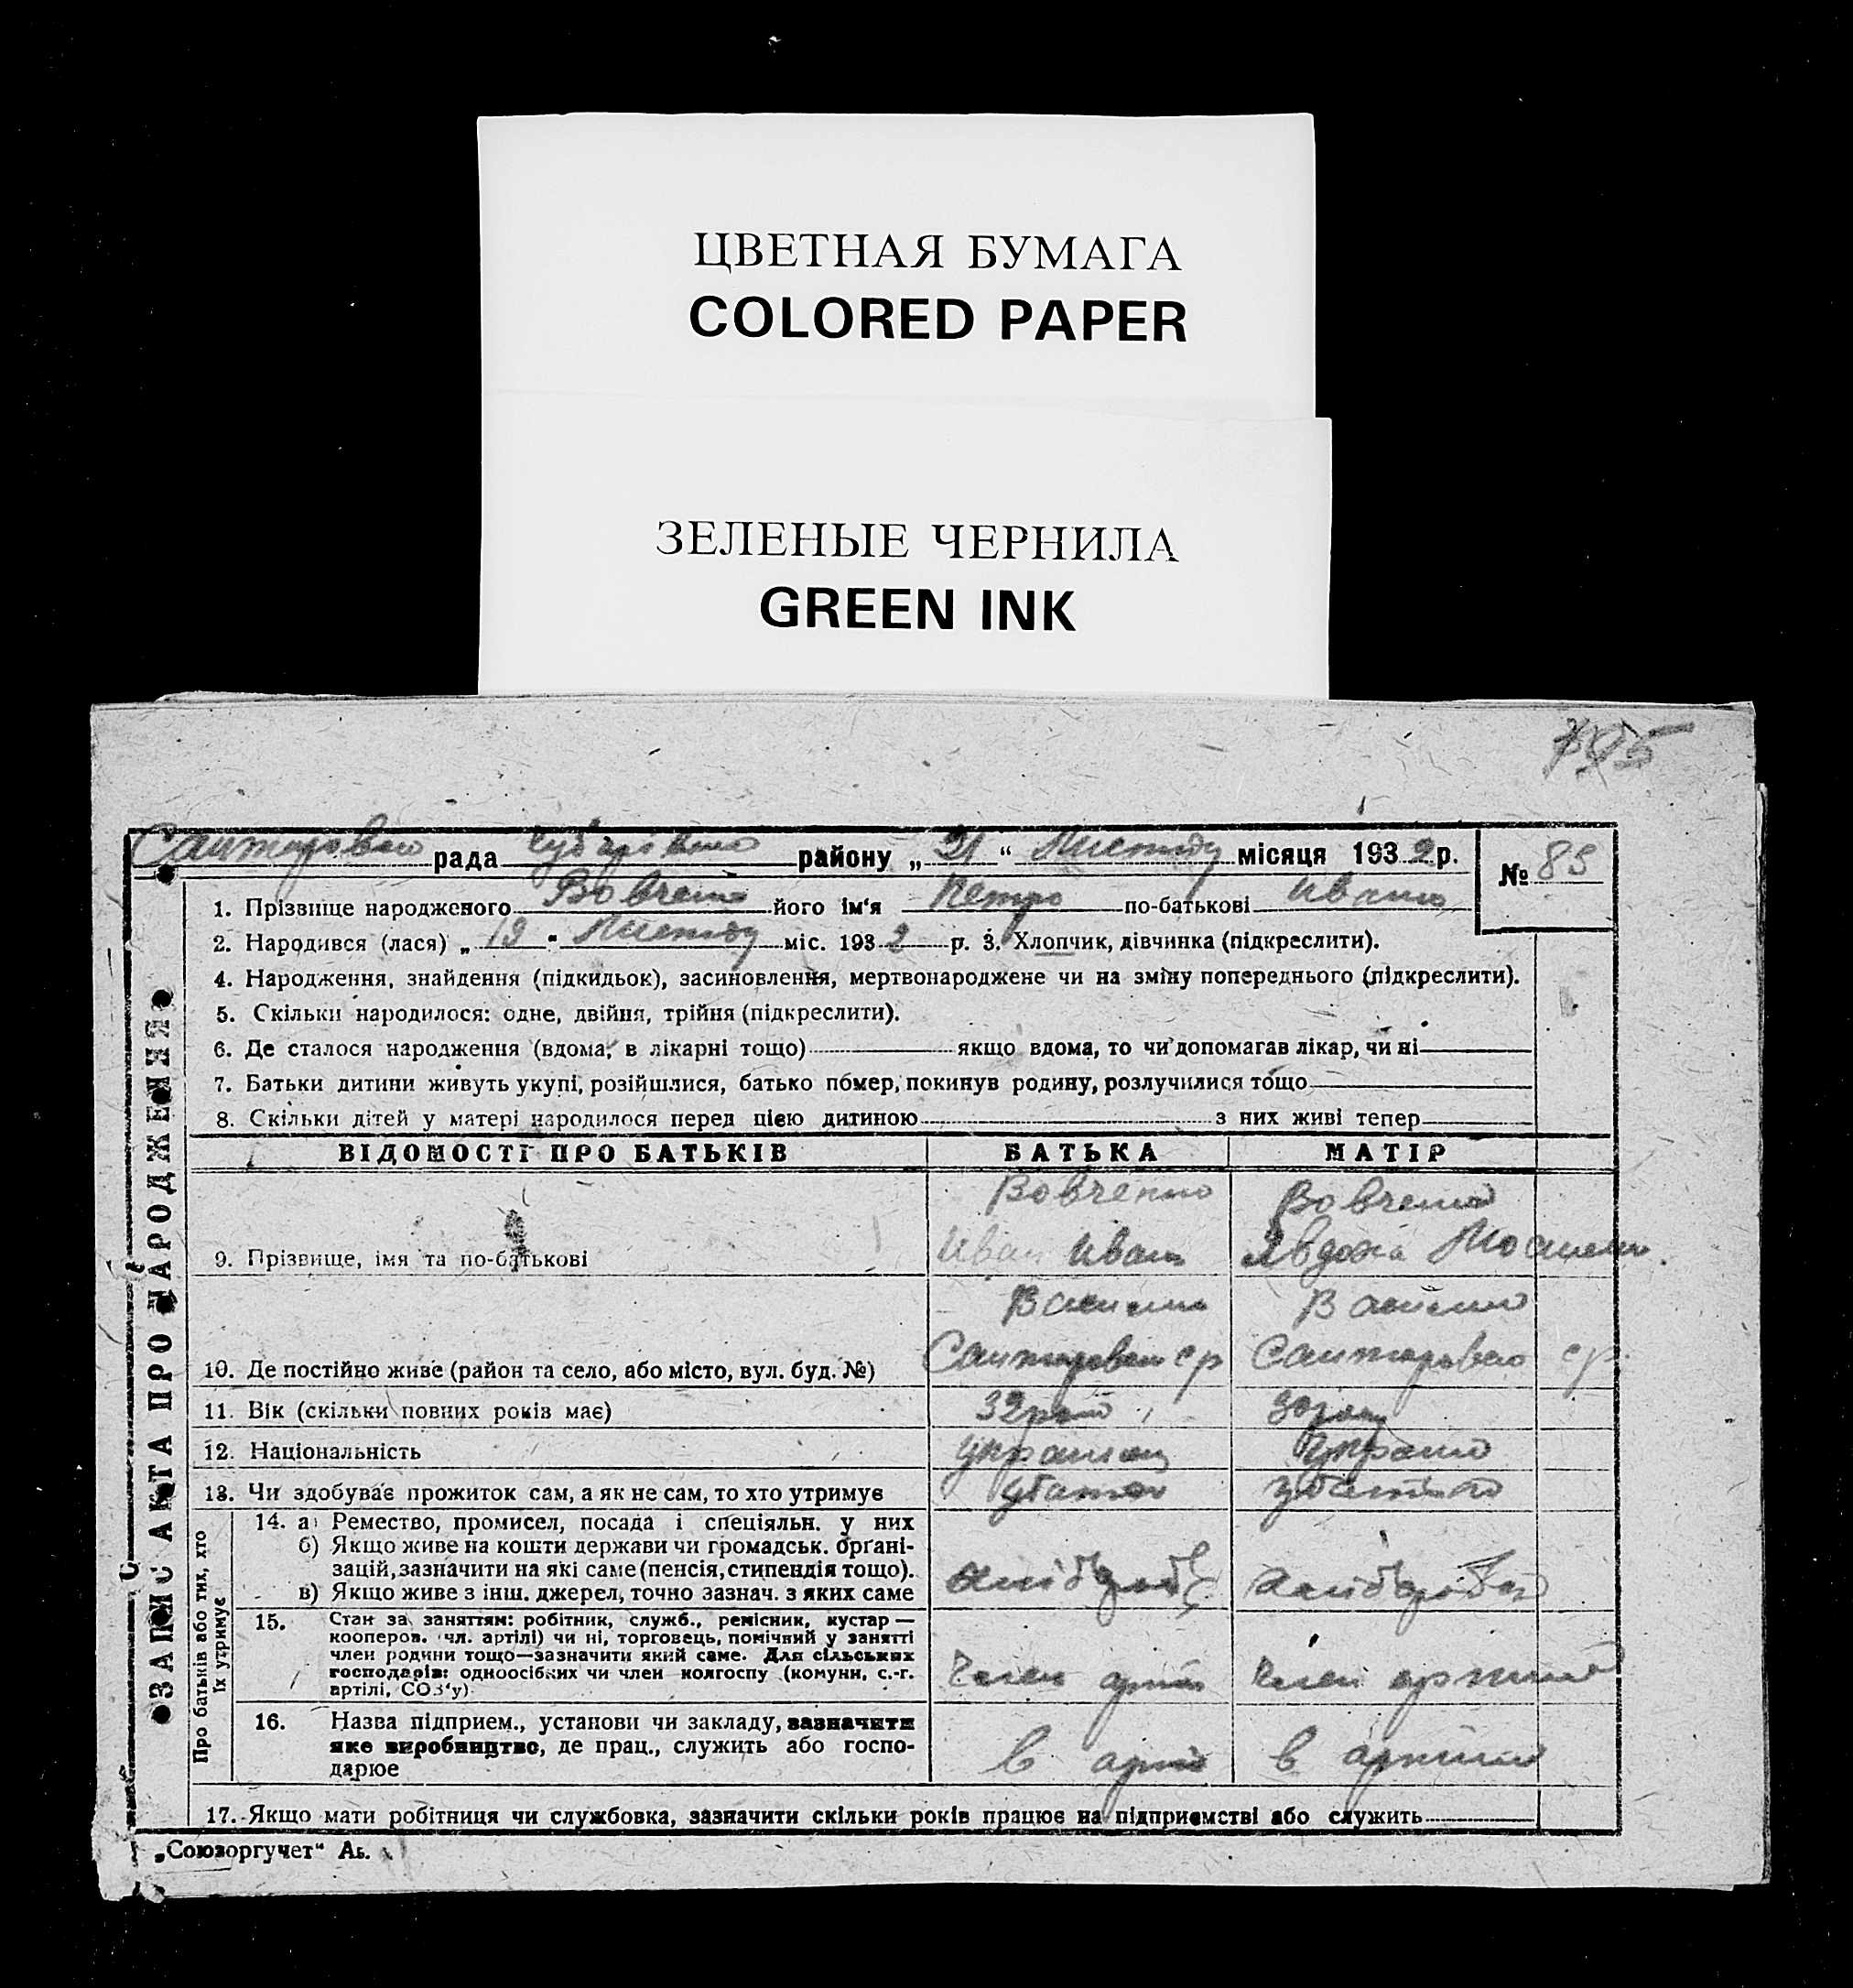 ЦВЕТНАЯ БУМАГА
COLORED PAPER
ЗЕЛЕНЫЕ ЧЕРНИЛА
GREEN INK
рада району „21“ Листопаду місяця 1932 р.
№ 85
1. Прізвище народженого Вовченко його ім'я Петро по-батькові Иванов
2. Народився (лася) „19 " Листопаду міс. 1932 р. 3. Хлопчик, дівчинка (підкреслити).
4. Народження, знайдення (підкидьок), засиновлення, мертвонароджене чи на зміну попереднього (підкреслити).
5. Скільки народилося: одне, двійня, трійня (підкреслити).
6. Де сталося народження (вдома, в лікарні тощо) якщо вдома, то чи допомагав лікар, чи ні
7. Батьки дитини живуть укупі, розійшлися, батько помер, покинув родину, розлучилися тощо
8. Скільки дітей у матері народилося перед цією дитиною з них живі тепер
ЗАПИС АКТА ПРО НАРОДЖЕННЯ
ВІДОМОСТІ ПРО БАТЬКІВ БАТЬКА МАТІР
Вовченко Вовченко
Иван Иван Явдоха
9. Прізвище, імя та по-батькові
10. Де постійно живе (район та село, або місто, вул. буд. №)
11. Вік (скільки повних років має) 32 30
12. Національність
13. Чи здобуває прожиток сам, а як не сам, то хто утримує
Про батьків або тих, хто їх утримує
14. а) Ремество, промисел, посада і спеціяльн. у них
б) Якщо живе на кошти держави чи громадськ. органі-
зацій, зазначити на які саме (пенсія, стипендія тощо).
в) Якщо живе з інш. джерел, точно зазнач. з яких саме
хлібороб
15. Стан за заняттям: робітник, служб., ремісник, кустар —
кооперов. чл. артілі) чи ні, торговець, помічний у занятті
член родини тощо—зазначити який саме. Для сільських
господарів: одноосібних чи член колгоспу (комуни, с.-г.
артілі, СОЗ'у)
Член артіл Член артілі
16. Назва підприєм., установи чи закладу, зазначити
яке виробництво, де прац., служить або госпо-
дарює
в арті в артілі
17. Якщо мати робітниця чи службовка, зазначити скільки років працює на підприємстві або служить
„Союзоргучет"